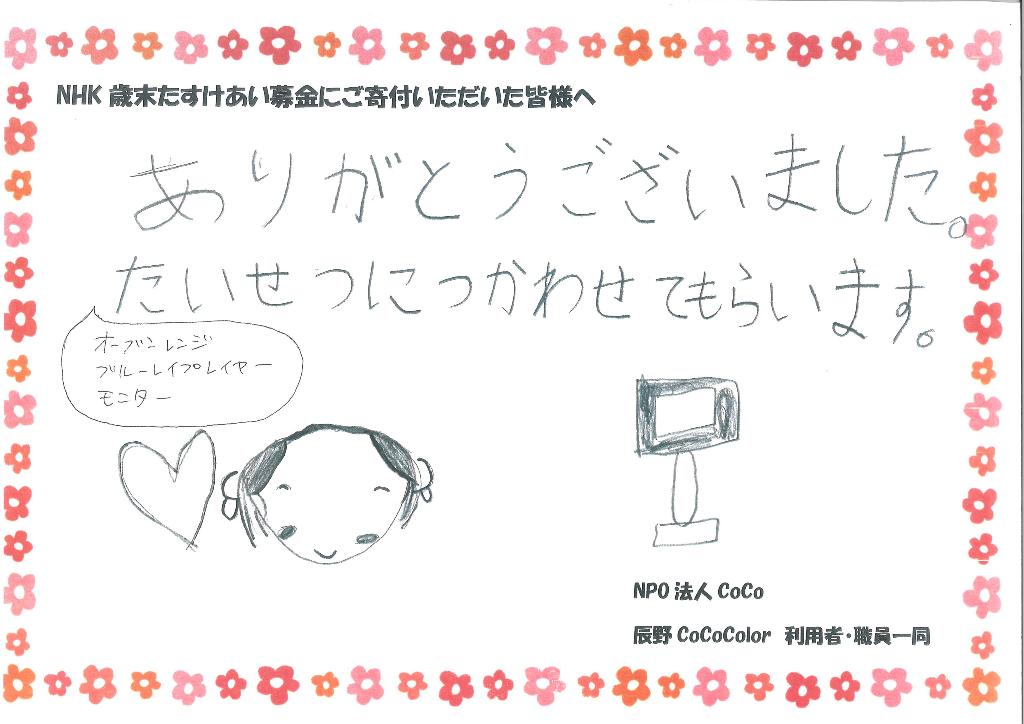 NHK 歳末たすけあい募金にご寄付いただいた皆様へ
ありがとうございました。
たいせつにつかわせてもらいます。
オーブンレンジ
ブルーレイプレイヤー
モニター
NPO 法人 CoCo
辰野 CoCoColor 利用者・職員一同